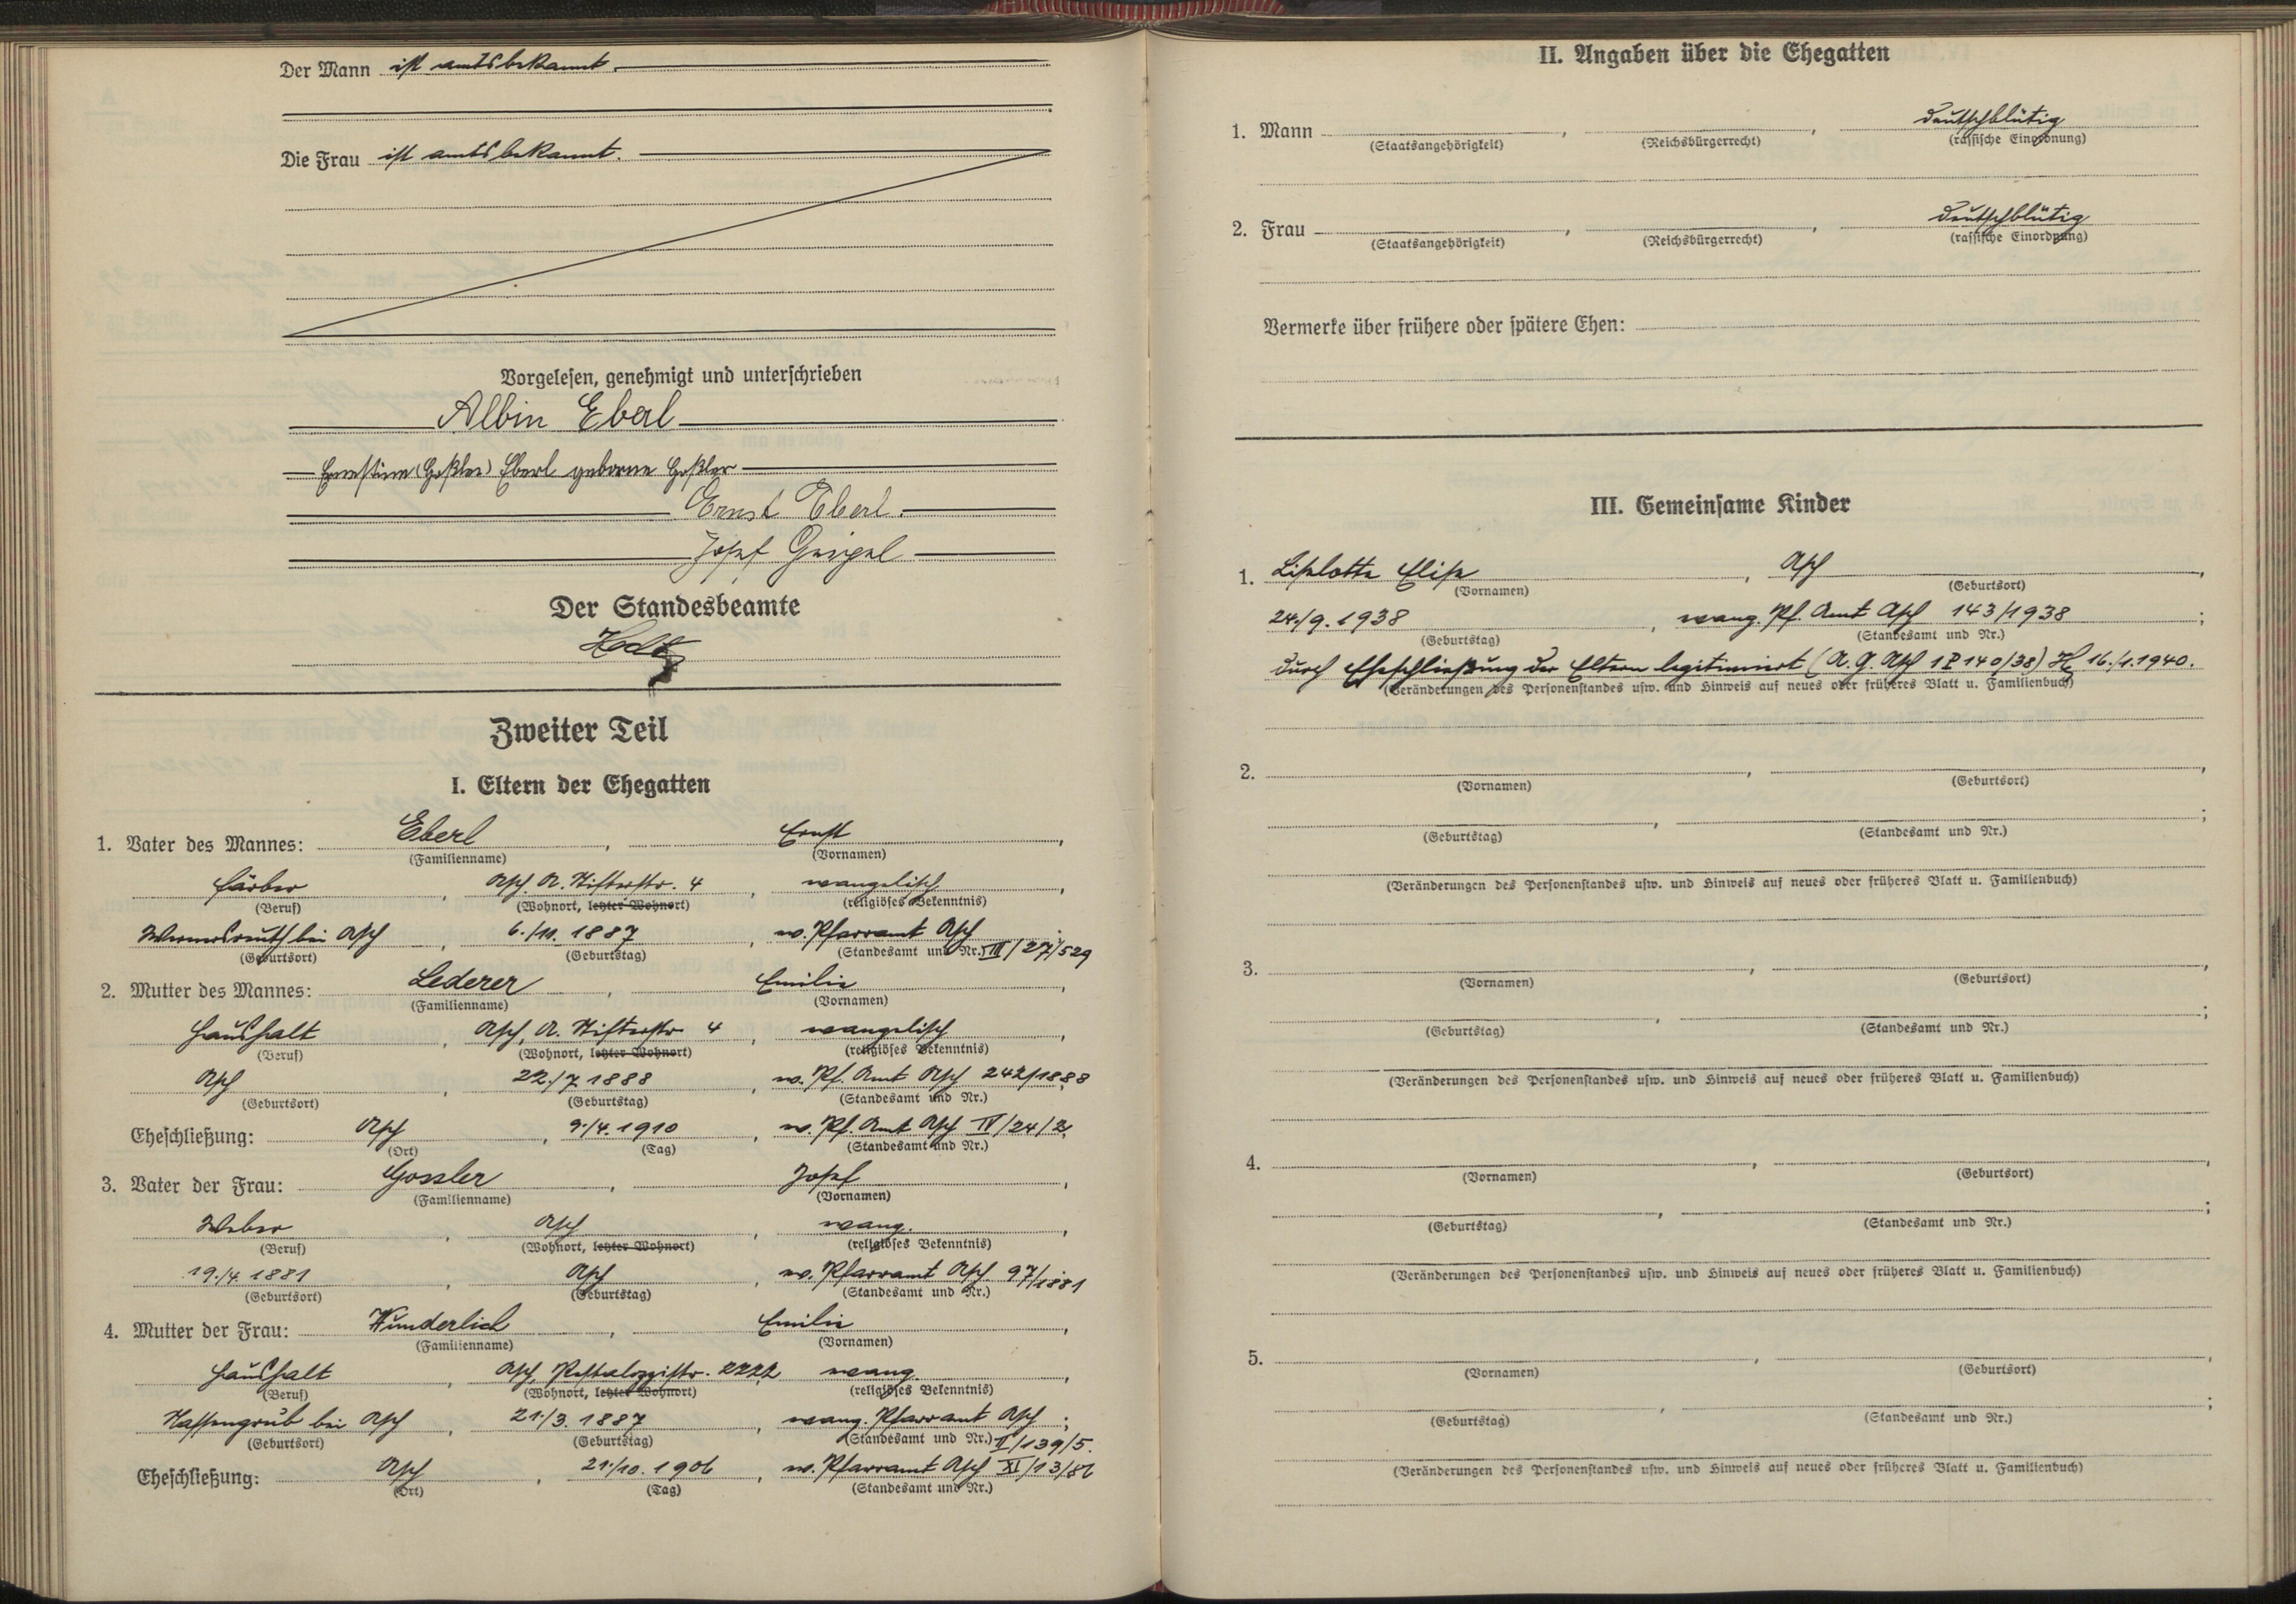 Der Mann ist amtsbekannt.
Die Frau ist amtsbekannt.
Vorgelesen, genehmigt und unterschrieben
Albin Eberl
Ernestine (Goßler) Eberl geborne Goßler
Ernst Eberl.
Josef Geigel
Der Standesbeamte
Zweiter Teil
I. Eltern der Ehegatten
1. Vater des Mannes: Eberl, Ernst,
(Familienname) (Vornamen)
Färber, Asch, A. Stifterstr. 4, evangelisch,
(Beruf) (Wohnort, letzter Wohnort) (religiöses Bekenntnis)
Wernersreuth bei Asch, 6./11. 1887, ev. Pfarramt Asch
(Geburtsort) (Geburtstag) (Standesamt und Nr.) III/27/529
2. Mutter des Mannes: Lederer, Emilie,
(Familienname) (Vornamen)
Haushalt, Asch, A. Stifterstr. 4, evangelisch,
(Beruf) (Wohnort, letzter Wohnort) (religiöses Bekenntnis)
Asch, 22./7. 1888, ev. Pf. Amt Asch 242/1888
(Geburtsort) (Geburtstag) (Standesamt und Nr.)
Eheschließung: Asch, 9./4. 1910, ev. Pf. Amt Asch IV/24/2
(Ort) (Tag) (Standesamt und Nr.)
3. Vater der Frau: Gossler, Josef,
(Familienname) (Vornamen)
Weber, Asch, evang.,
(Beruf) (Wohnort, letzter Wohnort) (religiöses Bekenntnis)
19./4. 1881, Asch, ev. Pfarramt Asch 97/1881
(Geburtsort) (Geburtstag) (Standesamt und Nr.)
4. Mutter der Frau: Wunderlich, Emilie,
(Familienname) (Vornamen)
Haushalt, Asch, Pestalozzistr. 2222, evang.,
(Beruf) (Wohnort, letzter Wohnort) (religiöses Bekenntnis)
Nassengrub bei Asch, 21./3. 1887, evang. Pfarramt Asch;
(Geburtsort) (Geburtstag) (Standesamt und Nr.) II/139/5.
Eheschließung: Asch, 21./10. 1906, ev. Pfarramt Asch XI/13/86
(Ort) (Tag) (Standesamt und Nr.)
II. Angaben über die Ehegatten
1. Mann , , deutschblütig
(Staatsangehörigkeit) (Reichsbürgerrecht) (rassische Einordnung)
2. Frau , , deutschblütig
(Staatsangehörigkeit) (Reichsbürgerrecht) (rassische Einordnung)
Vermerke über frühere oder spätere Ehen:
III. Gemeinsame Kinder
1. Liselotte Elise, Asch,
(Vornamen) (Geburtsort)
24./9. 1938, evang. Pf. Amt Asch 143/1938;
(Geburtstag) (Standesamt und Nr.)
durch Eheschließung der Eltern legitimiert (A. G. Asch 1 P 140/38) 16./1. 1940.
(Veränderungen des Personenstandes usw. und Hinweis auf neues oder früheres Blatt u. Familienbuch)
2. , ,
(Vornamen) (Geburtsort)
, ;
(Geburtstag) (Standesamt und Nr.)
(Veränderungen des Personenstandes usw. und Hinweis auf neues oder früheres Blatt u. Familienbuch)
3. , ,
(Vornamen) (Geburtsort)
, ;
(Geburtstag) (Standesamt und Nr.)
(Veränderungen des Personenstandes usw. und Hinweis auf neues oder früheres Blatt u. Familienbuch)
4. , ,
(Vornamen) (Geburtsort)
, ;
(Geburtstag) (Standesamt und Nr.)
(Veränderungen des Personenstandes usw. und Hinweis auf neues oder früheres Blatt u. Familienbuch)
5. , ,
(Vornamen) (Geburtsort)
, ;
(Geburtstag) (Standesamt und Nr.)
(Veränderungen des Personenstandes usw. und Hinweis auf neues oder früheres Blatt u. Familienbuch)